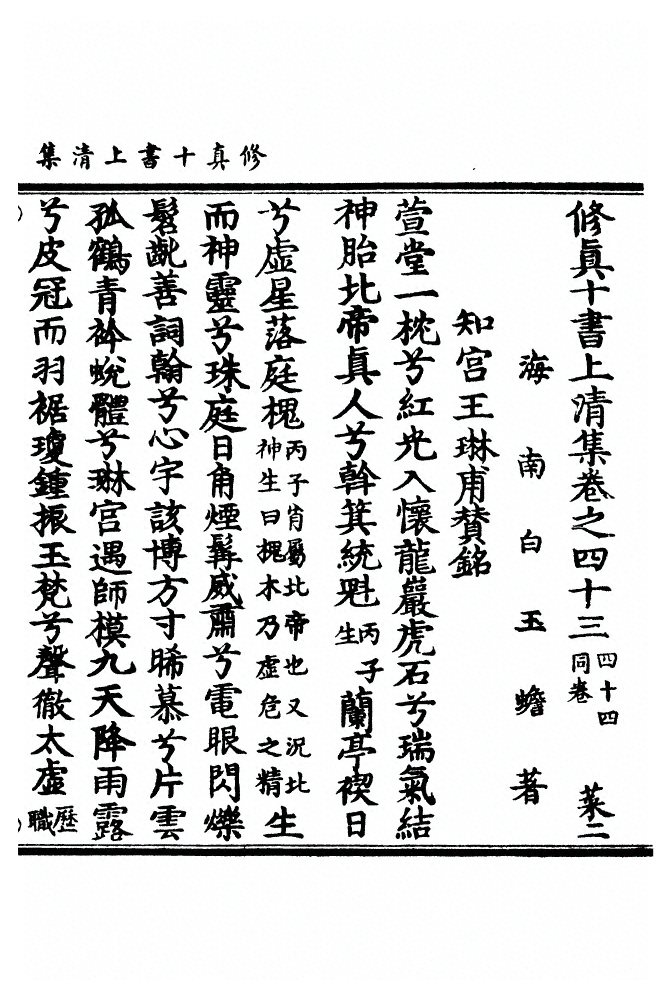 修真十書上清集
修眞十書上清集卷之四十三四十四同卷 菜二
海南白玉蟾著
知宫王琳甫賛銘
萱堂一枕兮紅光入懷龍巖虎石兮瑞氣結
神胎北帝眞人兮斡箕統魁丙子生蘭亭禊日
兮虛星落庭槐丙子肖屬北帝也又況北神生曰槐木乃虛危之精生
而神靈兮珠庭日角煙髯威肅兮電眼閃爍
髫齔善詞翰兮心宇該博方寸晞慕兮片雲
孤鶴青衿蛻體兮琳宫遇師模九天降雨露
兮皮冠而羽裾瓊鍾振玉梵兮聲徹太虛歷職